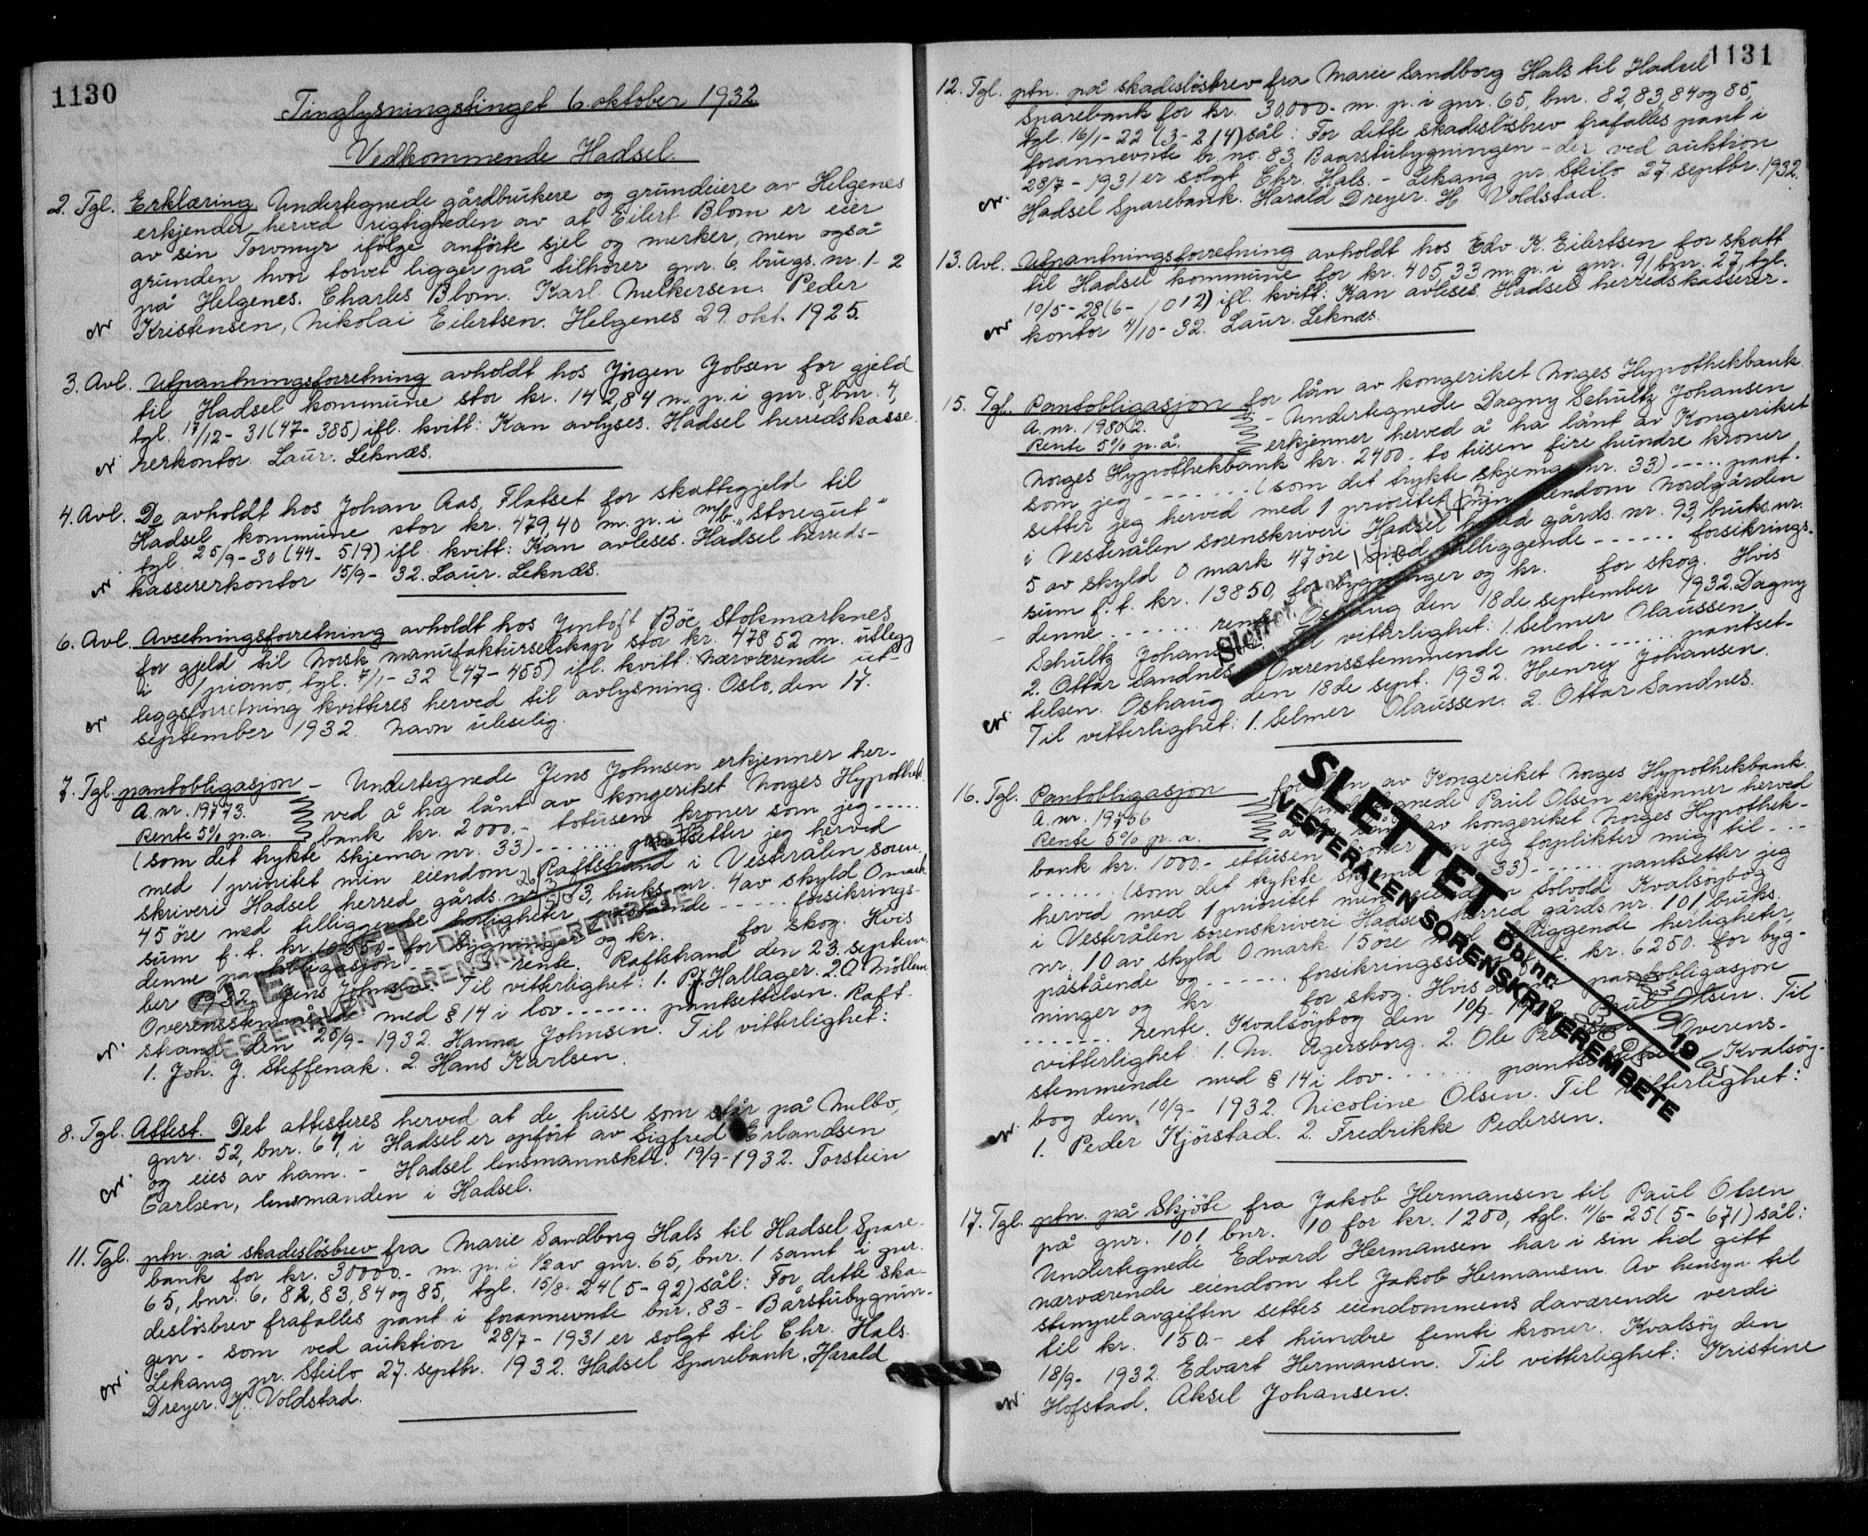 1130
Tinglysningstinget 6. oktober 1932
Vedkommende Hadsel.
2. Tgl. Erklæring Undertegnede gårdbrukere og grundeiere av Helgenes
erkjender herved rigtigheden av at Eilert Blom er eier
av sin Torvmyr ifölge anförte sjel og merker, men også
grunden hvor torvet ligger på tilhörer gnr. 6. brugs. nr. 1-2
på Helgenes. Charles Blom. Karl Melkersen. Peder
Kristensen, Nikolai Eilertsen. Helgenes 29. okt. 1925.
3. Avl. Utpantningsforretning avholdt hos Jörgen Jobsen for gjeld
til Hadsel kommune stor kr. 142,84 m. p. i gnr. 8, bnr. 4,
tgl. 17/12-31 (47-385) ifl. kvitt: Kan avlyses. Hadsel herredskasse-
rerkontor. Laur. Leknæs.
4. Avl. Do avholdt hos Johan Aas, Flatset for skattegjeld til
Hadsel kommune stor kr. 479,40 m. p. i m/b. "Storegut"
tgl. 25/9-30 (44-519) ifl. kvitt: Kan avleses. Hadsel herreds-
kassererkontor 15/9-32. Laur. Leknæs.
6. Avl. Avsetningsforretning avholdt hos Jentoft Böe, Stokmarknes
for gjeld til Norsk manufakturselskap stor kr. 478 52 m. utlegg
i 1 piano, tgl. 7/1-32 (47-455) ifl. kvitt: Nærværende ut-
leggsforretning kvitteres herved til avlysning. Oslo, den 17.
september 1932. Navn uleselig.
7. Tgl. pantobligasjon - Undertegnede Jens Johnsen erkjenner her-
A. nr. 19773. ved å ha lånt av kongeriket Norges Hypothek-
Rente 5% p. a. bank kr. 2000.- totusen kroner som jeg .....
(som det trykte skjema nr. 33) ....... pantsetter jeg herved
med 1 prioritet min eiendom Raftstrand i Vesterålen soren-
skriveri Hadsel herred gårds. nr. 63, bruks. nr. 4 av skyld 0 mark
45 öre med tilliggende herligheter, påstående ...... forsikrings-
sum f. t. kr. for bygninger og kr. for skog. Hvis
denne pantobligasjon ...... rente. Raftstrand den 23. septem-
ber 1932. Jens Johnsen. Til vitterlighet: 1. P. J. Hallager. 2. O. Möllem
Overensstemmende med § 14 i lov ....... pantsettelsen. Raft-
strand den 25/9-1932. Hanna Johnsen. Til vitterlighet:
1. Joh. J. Steffenak. 2. Hans Karlsen.
SLETTET
Db. nr.
VESTERÅLEN SORENSKRIVEREMBETE
8. Tgl. Attest. Det attesteres herved at de huse som står på Melbo,
gnr. 52, bnr. 67, i Hadsel er opfört av Sigfred Erlandsen
og eies av ham. - Hadsel lensmannsktr. 19/9-1932. Torstein
Carlsen, lensmanden i Hadsel.
11. Tgl. ptn. på skadeslösbrev fra Marie Sandborg Hals til Hadsel Spare-
bank for kr. 30000.- m. p. i 1/2 av gnr. 65, bnr. 1 samt i gnr.
65, bnr. 6, 82, 83, 84 og 85, tgl. 15/8-24 (5-92) sål: For dette ska-
deslösbrev frafalles pant i forannevnte bnr. 83 - Bårstubygnin-
gen - som ved auktion 28/7-1931 er solgt til Chr. Hals.
Lekang pr. Steilo 27. septbr. 1932. Hadsel Sparebank. Harald
Dreyer. H. Voldstad.
1131
12. Tgl. ptn. på skadeslösbrev fra Marie Sandborg Hals til Hadsel
Sparebank for kr. 30.000.- m. p. i gnr. 65, bnr. 82, 83, 84 og 85,
tgl. 16/1-22 (3-214) sål: For dette skadeslösbrev frafalles pant i
forannevnte br. no. 83, Baarstubygningen - der ved auktion
28/7-1931 er solgt Chr. Hals. - Lekang pr. Steilo 27. septbr. 1932.
Hadsel Sparebank. Harald Dreyer. H. Voldstad.
13. Avl. Utpantningsforretning avholdt hos Edv. K. Eilertsen for skatt
til Hadsel kommune for kr. 405,33 m. p. i gnr. 91, bnr. 27, tgl.
10/5-28 (6-1012) ifl. kvitt: Kan avleses. Hadsel herredskasserer-
kontor 4/10-32. Laur. Leknæs.
15. Tgl. Pantobligasjon for lån av kongeriket Norges Hypothekbank
A. nr. 19802. - Undertegnede Dagny Schultz Johansen
Rente 5% p. å. erkjenner herved å ha lånt av Kongeriket
Norges Hypothekbank kr. 2400.- to tusen fire hundre kroner
som jeg ........ (som det trykte skjema nr. 33) ..... pant-
setter jeg herved med 1 prioritet min eiendom Nordgården
i Vesterålen sorenskriveri Hadsel herred gårds. nr. 93, bruks. nr.
5 av skyld 0 mark 47 öre med tilliggende ...... forsikrings-
sum f. t. kr. 13850, for bygninger og kr. for skog. Hvis
denne ....... rente. Oshaug den 18de september 1932. Dagny
Schultz Johansen. Til vitterlighet: 1. Selmer Olaussen.
2. Ottar Sandnes. Overensstemmende med ...... pantset-
telsen. Oshaug den 18de sept. 1932. Henry Johansen.
Til vitterlighet: 1. Selmer Olaussen. 2. Ottar Sandnes.
16. Tgl. Pantobligasjon for lån av Kongeriket Norges Hypothekbank
A. nr. 19756 Undertegnede Paul Olsen erkjenner herved
Rente 5% p. a. å ha lånt av kongeriket Norges Hypothek-
bank kr. 1000.- ettusen kroner som jeg forplikter mig til ...
....... (som det trykte skjema nr. 33) ...... pantsetter jeg
herved med 1 prioritet min eiendom Solvold Kvalsöybog
i Vesterålen sorenskriveri Hadsel herred gårds. nr. 101 bruks.
nr. 10 av skyld 0 mark 15 öre med tilliggende herligheter,
påstående og ...... forsikringssum f. t. kr. 6250. for byg-
ninger og kr for skog. Hvis denne pantobligasjon
....... rente. Kvalsöybog den 10/9-1932. Paul Olsen. Til
vitterlighet: 1. M. Agersborg. 2. Ole Overens-
stemmende med § 14 i lov ....... pantsettelsen. Kvalsöy-
bog den 10/9-1932. Nicoline Olsen. Til vitterlighet:
1. Peder Kjörstad. 2. Fredrikke Pedersen.
SLETTET
Db. nr. 19
VESTERÅLEN SORENSKRIVEREMBETE
17. Tgl. ptn. på Skjöte fra Jakob Hermansen til Paul Olsen
på gnr. 101 bnr. 10 for kr. 1200, tgl. 11/6-25 (5-671) sål:
Undertegnede Edvard Hermansen har i sin tid gitt
nærværende eiendom til Jakob Hermansen. Av hensyn til
stempelavgiften settes eiendommens daværende verdi
til kr. 150.- et hundre femti kroner. Kvalsöy den
18/9-1932. Edvart Hermansen. Til vitterlighet: Kristine
Hofstad. Aksel Johansen.